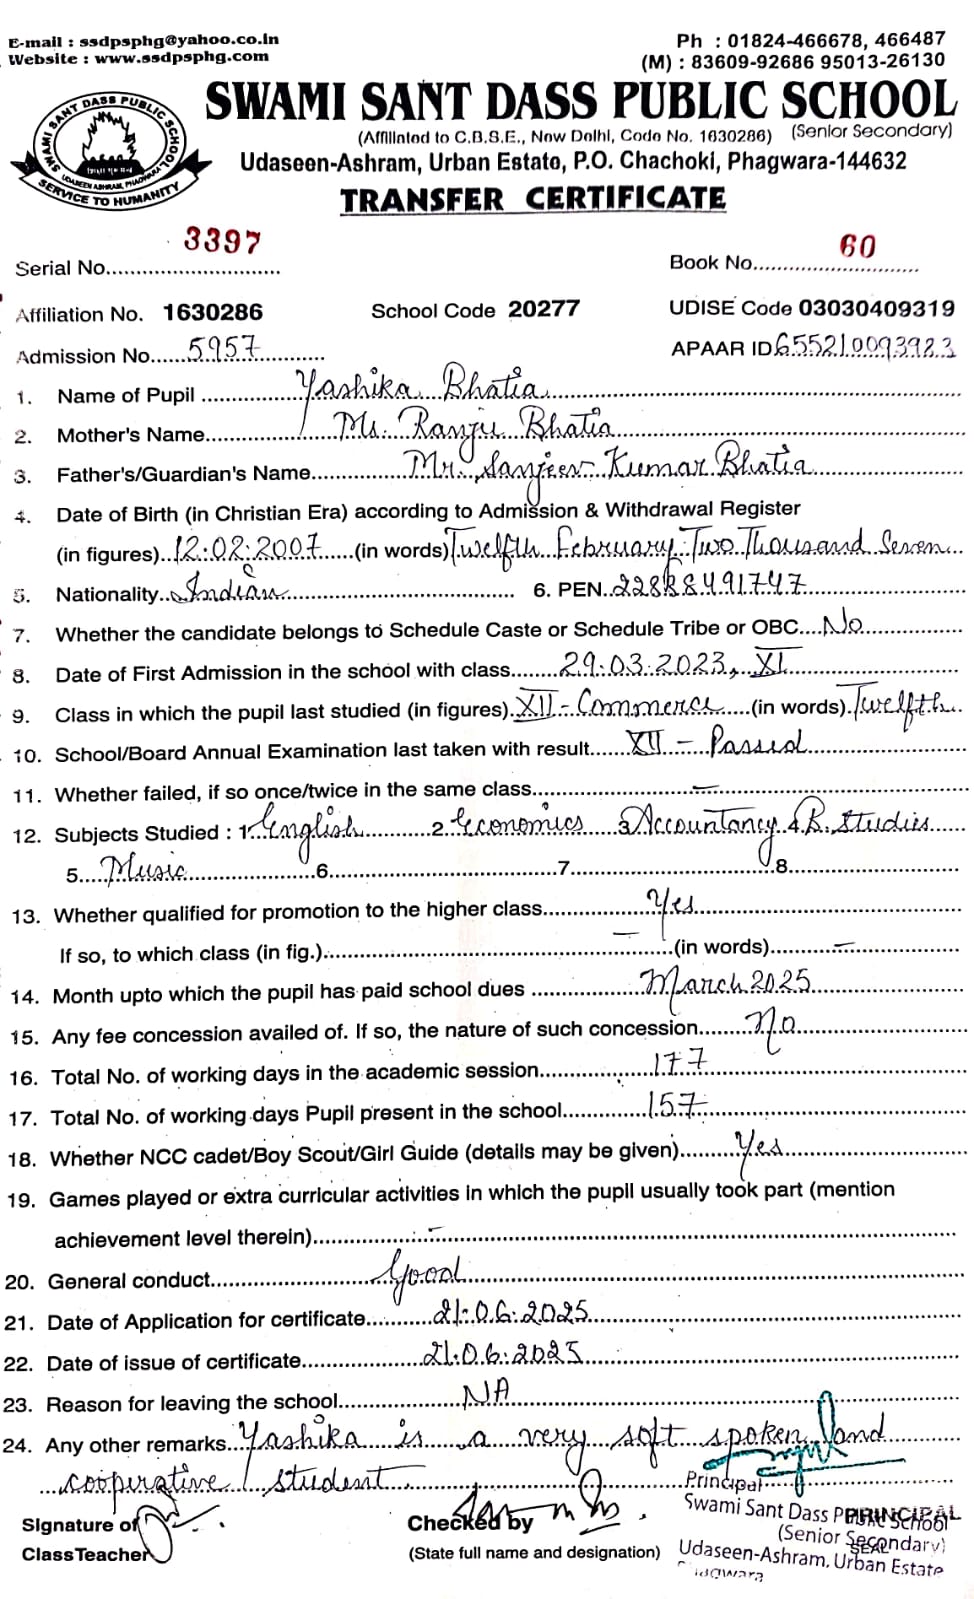 E-mail : ssdpsphg@yahoo.co.in
Website : www.ssdpsphg.com
Ph : 01824-466678, 466487
(M) : 83609-92686 95013-26130
SWAMI SANT DASS PUBLIC SCHOOL
SWAMI SANT DASS PUBLIC SCHOOL
UDASEEN ASHRAM, PHAGWARA
SERVICE TO HUMANITY
(Affiliated to C.B.S.E., New Delhi, Code No. 1630286) (Senior Secondary)
Udaseen-Ashram, Urban Estate, P.O. Chachoki, Phagwara-144632
TRANSFER CERTIFICATE
Serial No. 3397 Book No. 60
Affiliation No. 1630286 School Code 20277 UDISE Code 03030409319
Admission No. 5957 APAAR ID 655210093983
1. Name of Pupil Yashika Bhatia
2. Mother's Name Ms. Ranju Bhatia
3. Father's/Guardian's Name Mr. Sanjeev Kumar Bhatia
4. Date of Birth (in Christian Era) according to Admission & Withdrawal Register
(in figures) 12.02.2007 (in words) Twelfth February Two Thousand Seven
5. Nationality Indian 6. PEN 22888491747
7. Whether the candidate belongs to Schedule Caste or Schedule Tribe or OBC No
8. Date of First Admission in the school with class 29.03.2023, XI
9. Class in which the pupil last studied (in figures) XII - Commerce (in words) Twelfth
10. School/Board Annual Examination last taken with result XII - Passed
11. Whether failed, if so once/twice in the same class —
12. Subjects Studied : 1. English 2. Economics 3. Accountancy 4. B. Studies
5. Music 6 7 8
13. Whether qualified for promotion to the higher class Yes
If so, to which class (in fig.) — (in words) —
14. Month upto which the pupil has paid school dues March 2025
15. Any fee concession availed of. If so, the nature of such concession No
16. Total No. of working days in the academic session 177
17. Total No. of working days Pupil present in the school 157
18. Whether NCC cadet/Boy Scout/Girl Guide (details may be given) Yes
19. Games played or extra curricular activities in which the pupil usually took part (mention
achievement level therein) –
20. General conduct Good
21. Date of Application for certificate 21.06.2025
22. Date of issue of certificate 21.06.2025
23. Reason for leaving the school NA
24. Any other remarks Yashika is a very soft spoken and
cooperative student
Principal
Swami Sant Dass Public School
PRINCIPAL
(Senior Secondary)
SEAL
Udaseen-Ashram, Urban Estate
Phagwara
Signature of
Class Teacher
Checked by
(State full name and designation)